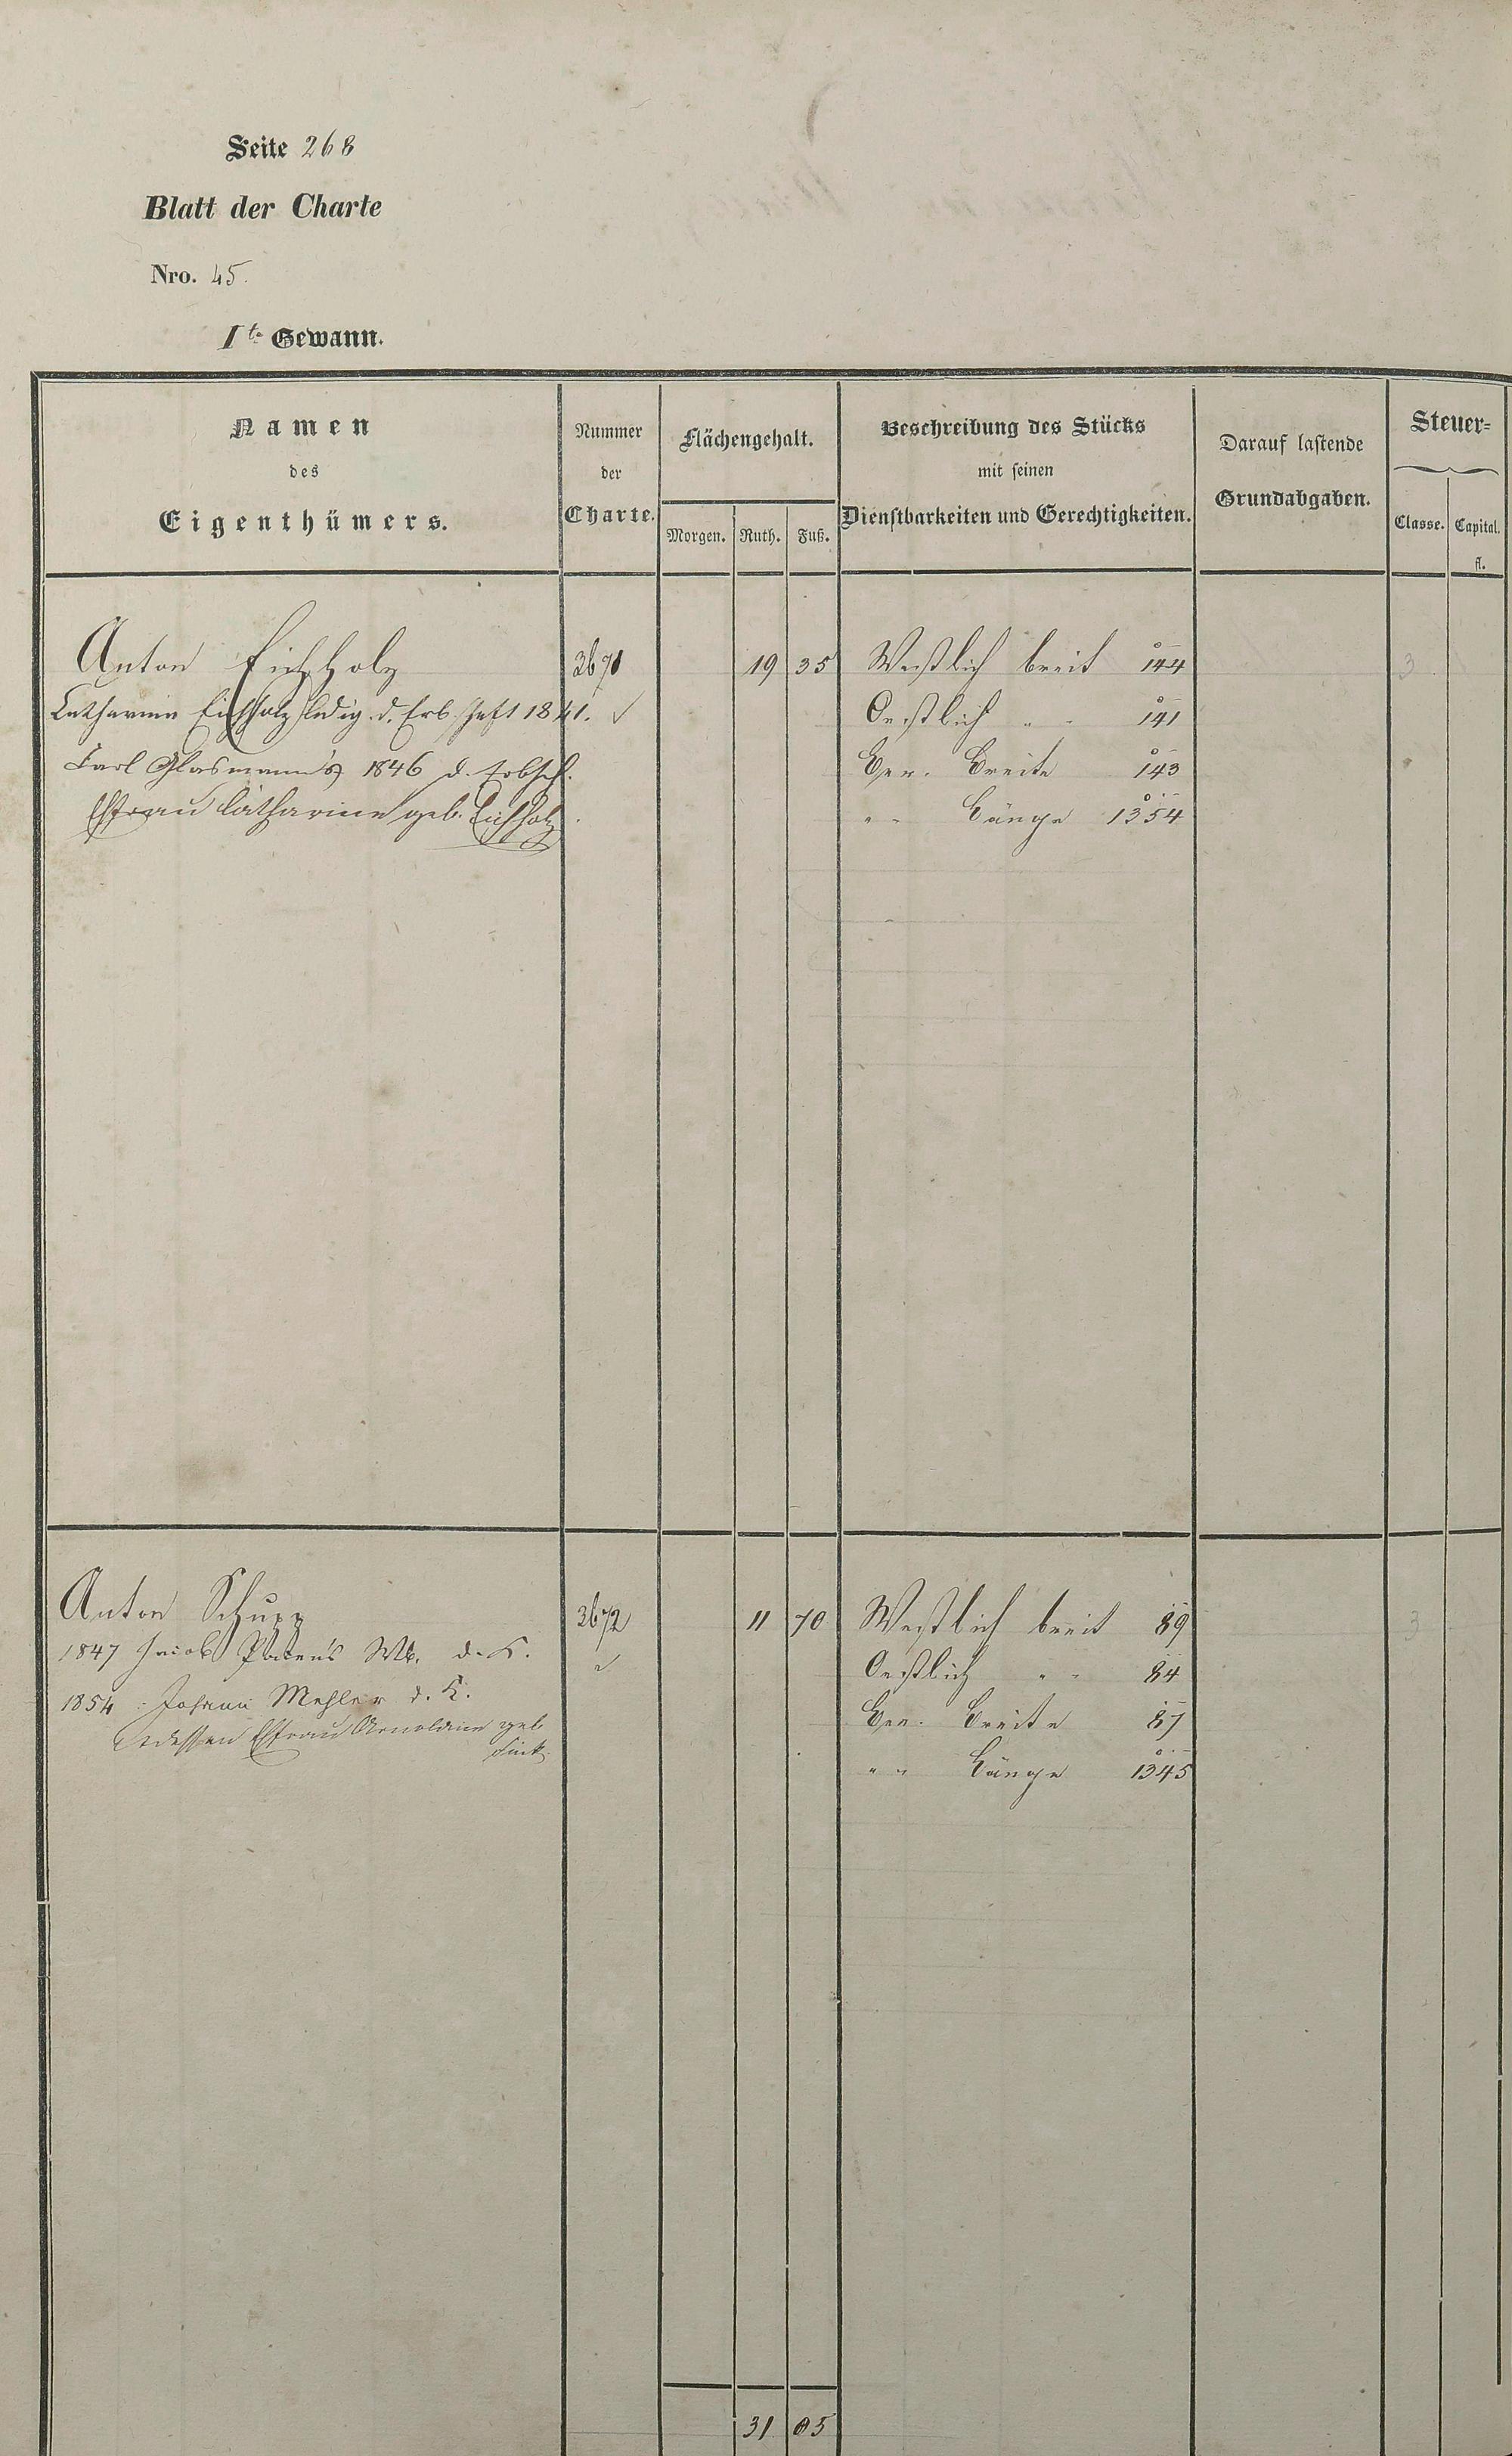 Seite 268
Blatt der Charte
Nro. 45.
I te Gewann.
Namen
des
Eigenthümers.
Nummer
der
Charte.
Flächengehalt.
Morgen. Ruth. Fuß.
Beschreibung des Stücks
mit seinen
Dienstbarkeiten und Gerechtigkeiten.
Darauf lastende
Grundabgaben.
Steuer=
Classe. Capital.
fl.
Anton Eichholz 3671 19 35 Westlich breit 144 3
Catharina Eichholz ledig. d. Erbschaft 1841. ✓ Oestlich " " 141
Carl Glasmann's 1846 d. Erbsch. Ger. Breite 143
Ehfrau Catharine geb. Eichholz. " " Länge 1354
Anton Schupp 3672 11 70 Westlich breit 89 3
1847 Jacob Wb. d. K. ✓ Oestlich " " 84
1854 Johann Mehler d. K. Ger. Breite 87
dessen Ehfrau Arnoldine geb. " " Länge 1345
Fink.
31 05